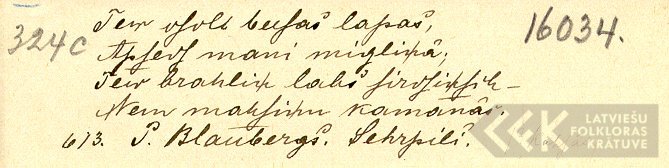 324c
16034.
Tew osolt beesas lapas,
Apsedf mani miglinâ;
Tew brahlin labs sirdsinsch –
Nem mahsinu kamanâs.
613. P. Blaubergs. Sehrpili.
LATVIEŠU
FOLKLORAS
KRĀTUVE